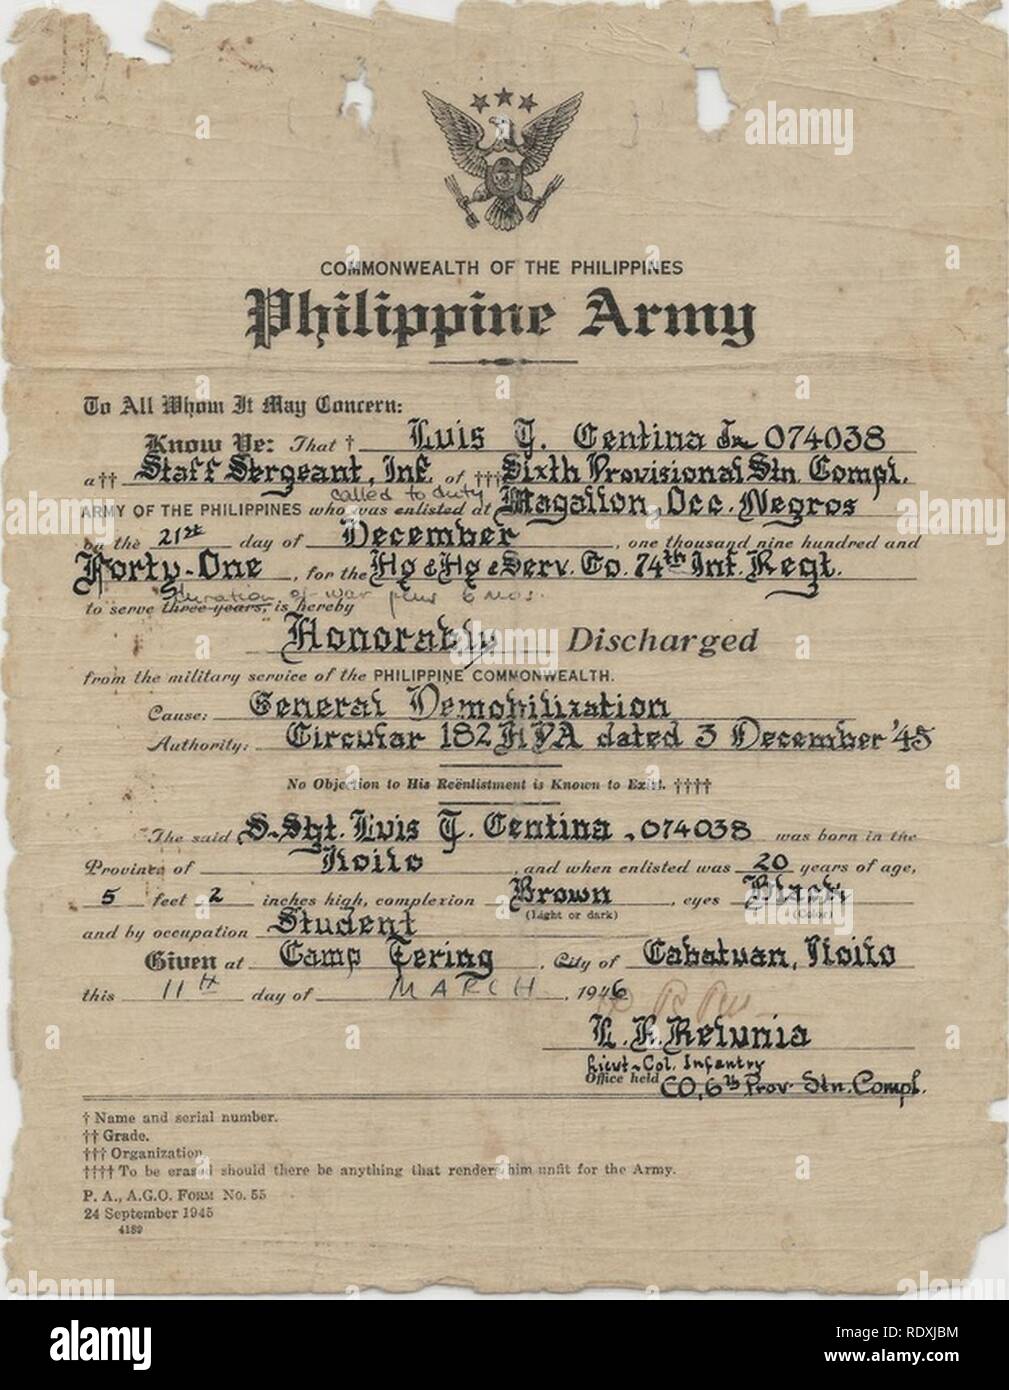 COMMONWEALTH OF THE PHILIPPINES
Philippine Army
To All Whom It May Concern:
Know Ye: That † Luis T. Centina Jr. 074038
a †† Staff Sergeant, Inf. of ††† Sixth Provisional Stn. Compl.
called to duty
ARMY OF THE PHILIPPINES who was enlisted at Magallon, Occ. Negros
on the 21st day of December, one thousand nine hundred and
Forty-One, for the Hq & Hq & Serv. Co. 74th Inf. Regt.
duration of war plus 6 mos.
to serve three years, is hereby
Honorably Discharged
from the military service of the PHILIPPINE COMMONWEALTH.
Cause: General Demobilization
Authority: Circular 182 HPA dated 3 December '45
No Objection to His Reënlistment is Known to Exist. ††††
The said S-Sgt. Luis T. Centina, 074038 was born in the
Province of Iloilo, and when enlisted was 20 years of age,
5 feet 2 inches high, complexion Brown, eyes Black
(Light or dark) (Color)
and by occupation Student
Given at Camp Tering, City of Cabatuan, Iloilo
this 11th day of MARCH, 1946
L. R. Relunia
Lieut-Col. Infantry
Office held CO, 6th Prov. Stn. Compl.
† Name and serial number.
†† Grade.
††† Organization
†††† To be erased should there be anything that renders him unfit for the Army.
P. A., A.G.O. FORM No. 55
24 September 1945
4189
alamy
Image ID: RDXJBM
www.alamy.com